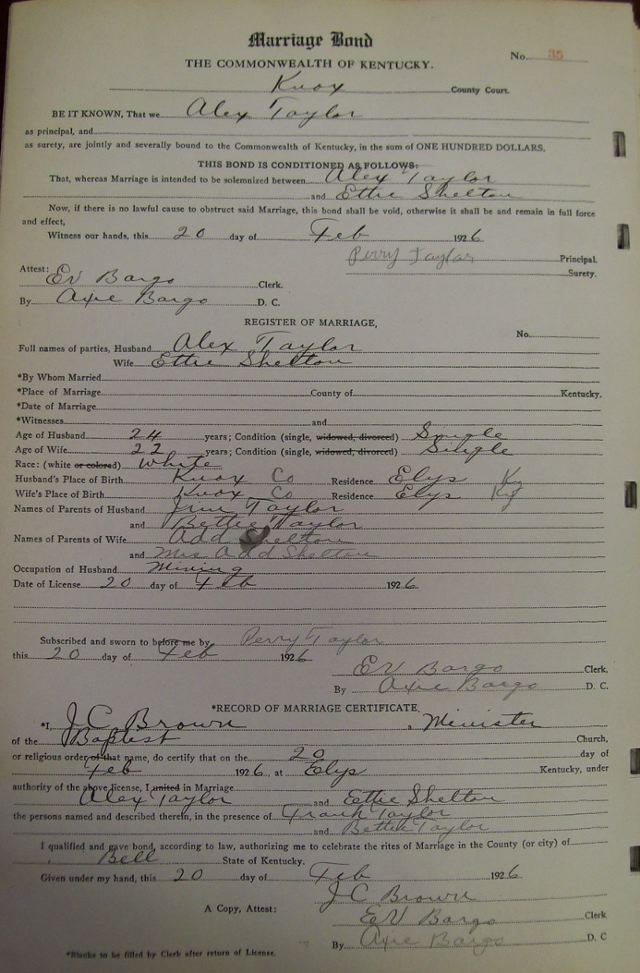 Marriage Bond
No. 35
THE COMMONWEALTH OF KENTUCKY.
Knox County Court.
BE IT KNOWN, That we Alex Taylor
as principal, and
as surety, are jointly and severally bound to the Commonwealth of Kentucky, in the sum of ONE HUNDRED DOLLARS.
THIS BOND IS CONDITIONED AS FOLLOWS:
That, whereas Marriage is intended to be solemnized between Alex Taylor
and Ettie Shelton
Now, if there is no lawful cause to obstruct said Marriage, this bond shall be void, otherwise it shall be and remain in full force
and effect,
Witness our hands, this 20 day of Feb 1926
Perry Taylor Principal.
Surety.
Attest: EV Bargo Clerk.
By Axie Bargo D. C.
REGISTER OF MARRIAGE,
No.
Full names of parties, Husband Alex Taylor
Wife Ettie Shelton
*By Whom Married
*Place of Marriage County of Kentucky.
*Date of Marriage
*Witnesses and
Age of Husband 24 years; Condition (single, widowed, divorced) Single
Age of Wife 22 years; Condition (single, widowed, divorced) Single
Race: (white or colored) White
Husband's Place of Birth Knox Co Residence Elys Ky
Wife's Place of Birth Knox Co Residence Elys Ky
Names of Parents of Husband Jim Taylor
and Bettie Taylor
Names of Parents of Wife Add Shelton
and Mrs Add Shelton
Occupation of Husband Mining
Date of License 20 day of Feb 1926
Subscribed and sworn to before me by Perry Taylor
this 20 day of Feb 1926
EV Bargo Clerk,
By Axie Bargo D. C.
*RECORD OF MARRIAGE CERTIFICATE,
*I, J C Brown, Minister
of the Baptist Church,
or religious order of that name, do certify that on the 20 day of
Feb 1926, at Elys Kentucky, under
authority of the above license, I united in Marriage
Alex Taylor and Ettie Shelton
the persons named and described therein, in the presence of Frank Taylor
and Bettie Taylor
I qualified and gave bond, according to law, authorizing me to celebrate the rites of Marriage in the County (or city) of
Bell State of Kentucky.
Given under my hand, this 20 day of Feb 1926
J C Brown
A Copy, Attest: EV Bargo Clerk
By Axie Bargo D. C
*Blanks to be filled by Clerk after return of License.